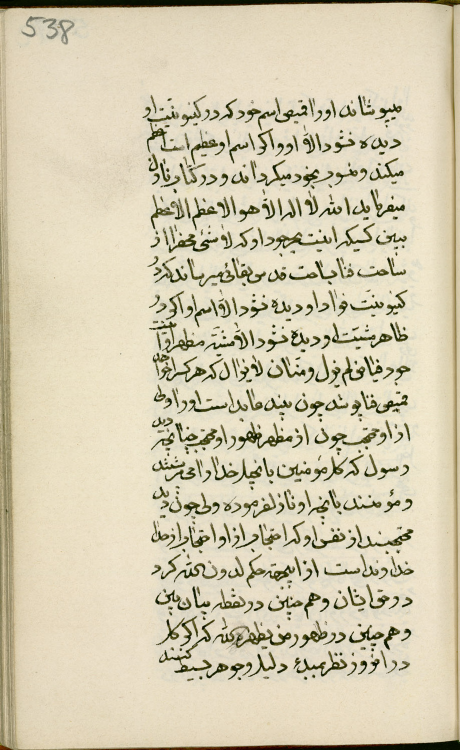 538
میپوشاند او را قمیص اسم خود که در کینونیت او
دیده نشود الا او و اگر اسم او عظیم است اعظم
میکند و منسوب بخود میگرداند و در کتاب نازل
میفرماید الله لا اله الا هو الاعظم الاعظم
ببین کسیکه اینست جود او که لا شئی محض را از
ساحت فنا بساحت قدس بقائی میرساند که در
کینونیت فؤاد او دیده نشود الا اسم او اگر در
ظاهر مشیت او دیده نشود الا مشیته مظهر او اینست
جود فیاض لم یزل و منان لا یزال که هر کس را خواهد
قمیص فنا پوشد چون بیند عابد است او را ولی
از او محتجب چون از مظهر ظهور او محتجب چنانچه دید
رسول که کل مؤمنین بانجیل خدا را می پرستند
و مؤمنند بآنچه او نازل فرموده ولی چون دید
محتجبند از نفس او که احتجاب از او احتجاب از خدا
خداوند است از اینجهة حکم لدون الله کرد
در حق ایشان و هم چنین در نقطه بیان ببین
و هم چنین در ظهور من یظهره الله که اگر کل
در آنروز نظر بمبدء دلیل و جوهر سبیل کنند